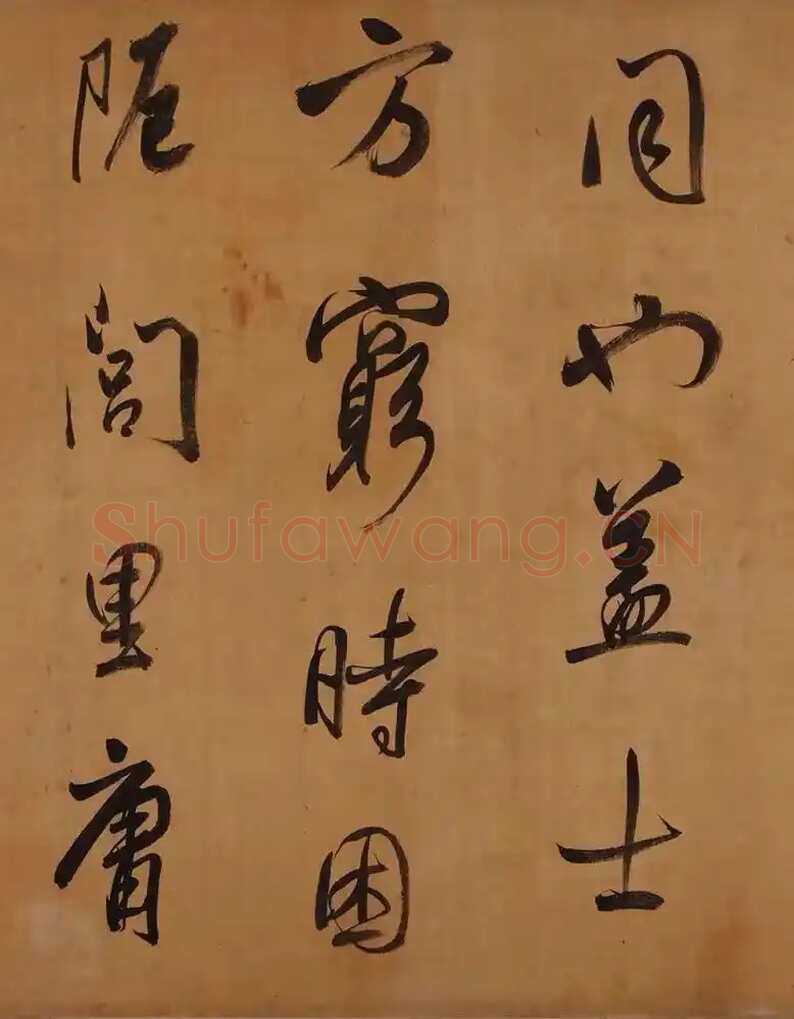 同也盖士
方窮時困
阨閭里庸
Shufawang.CN